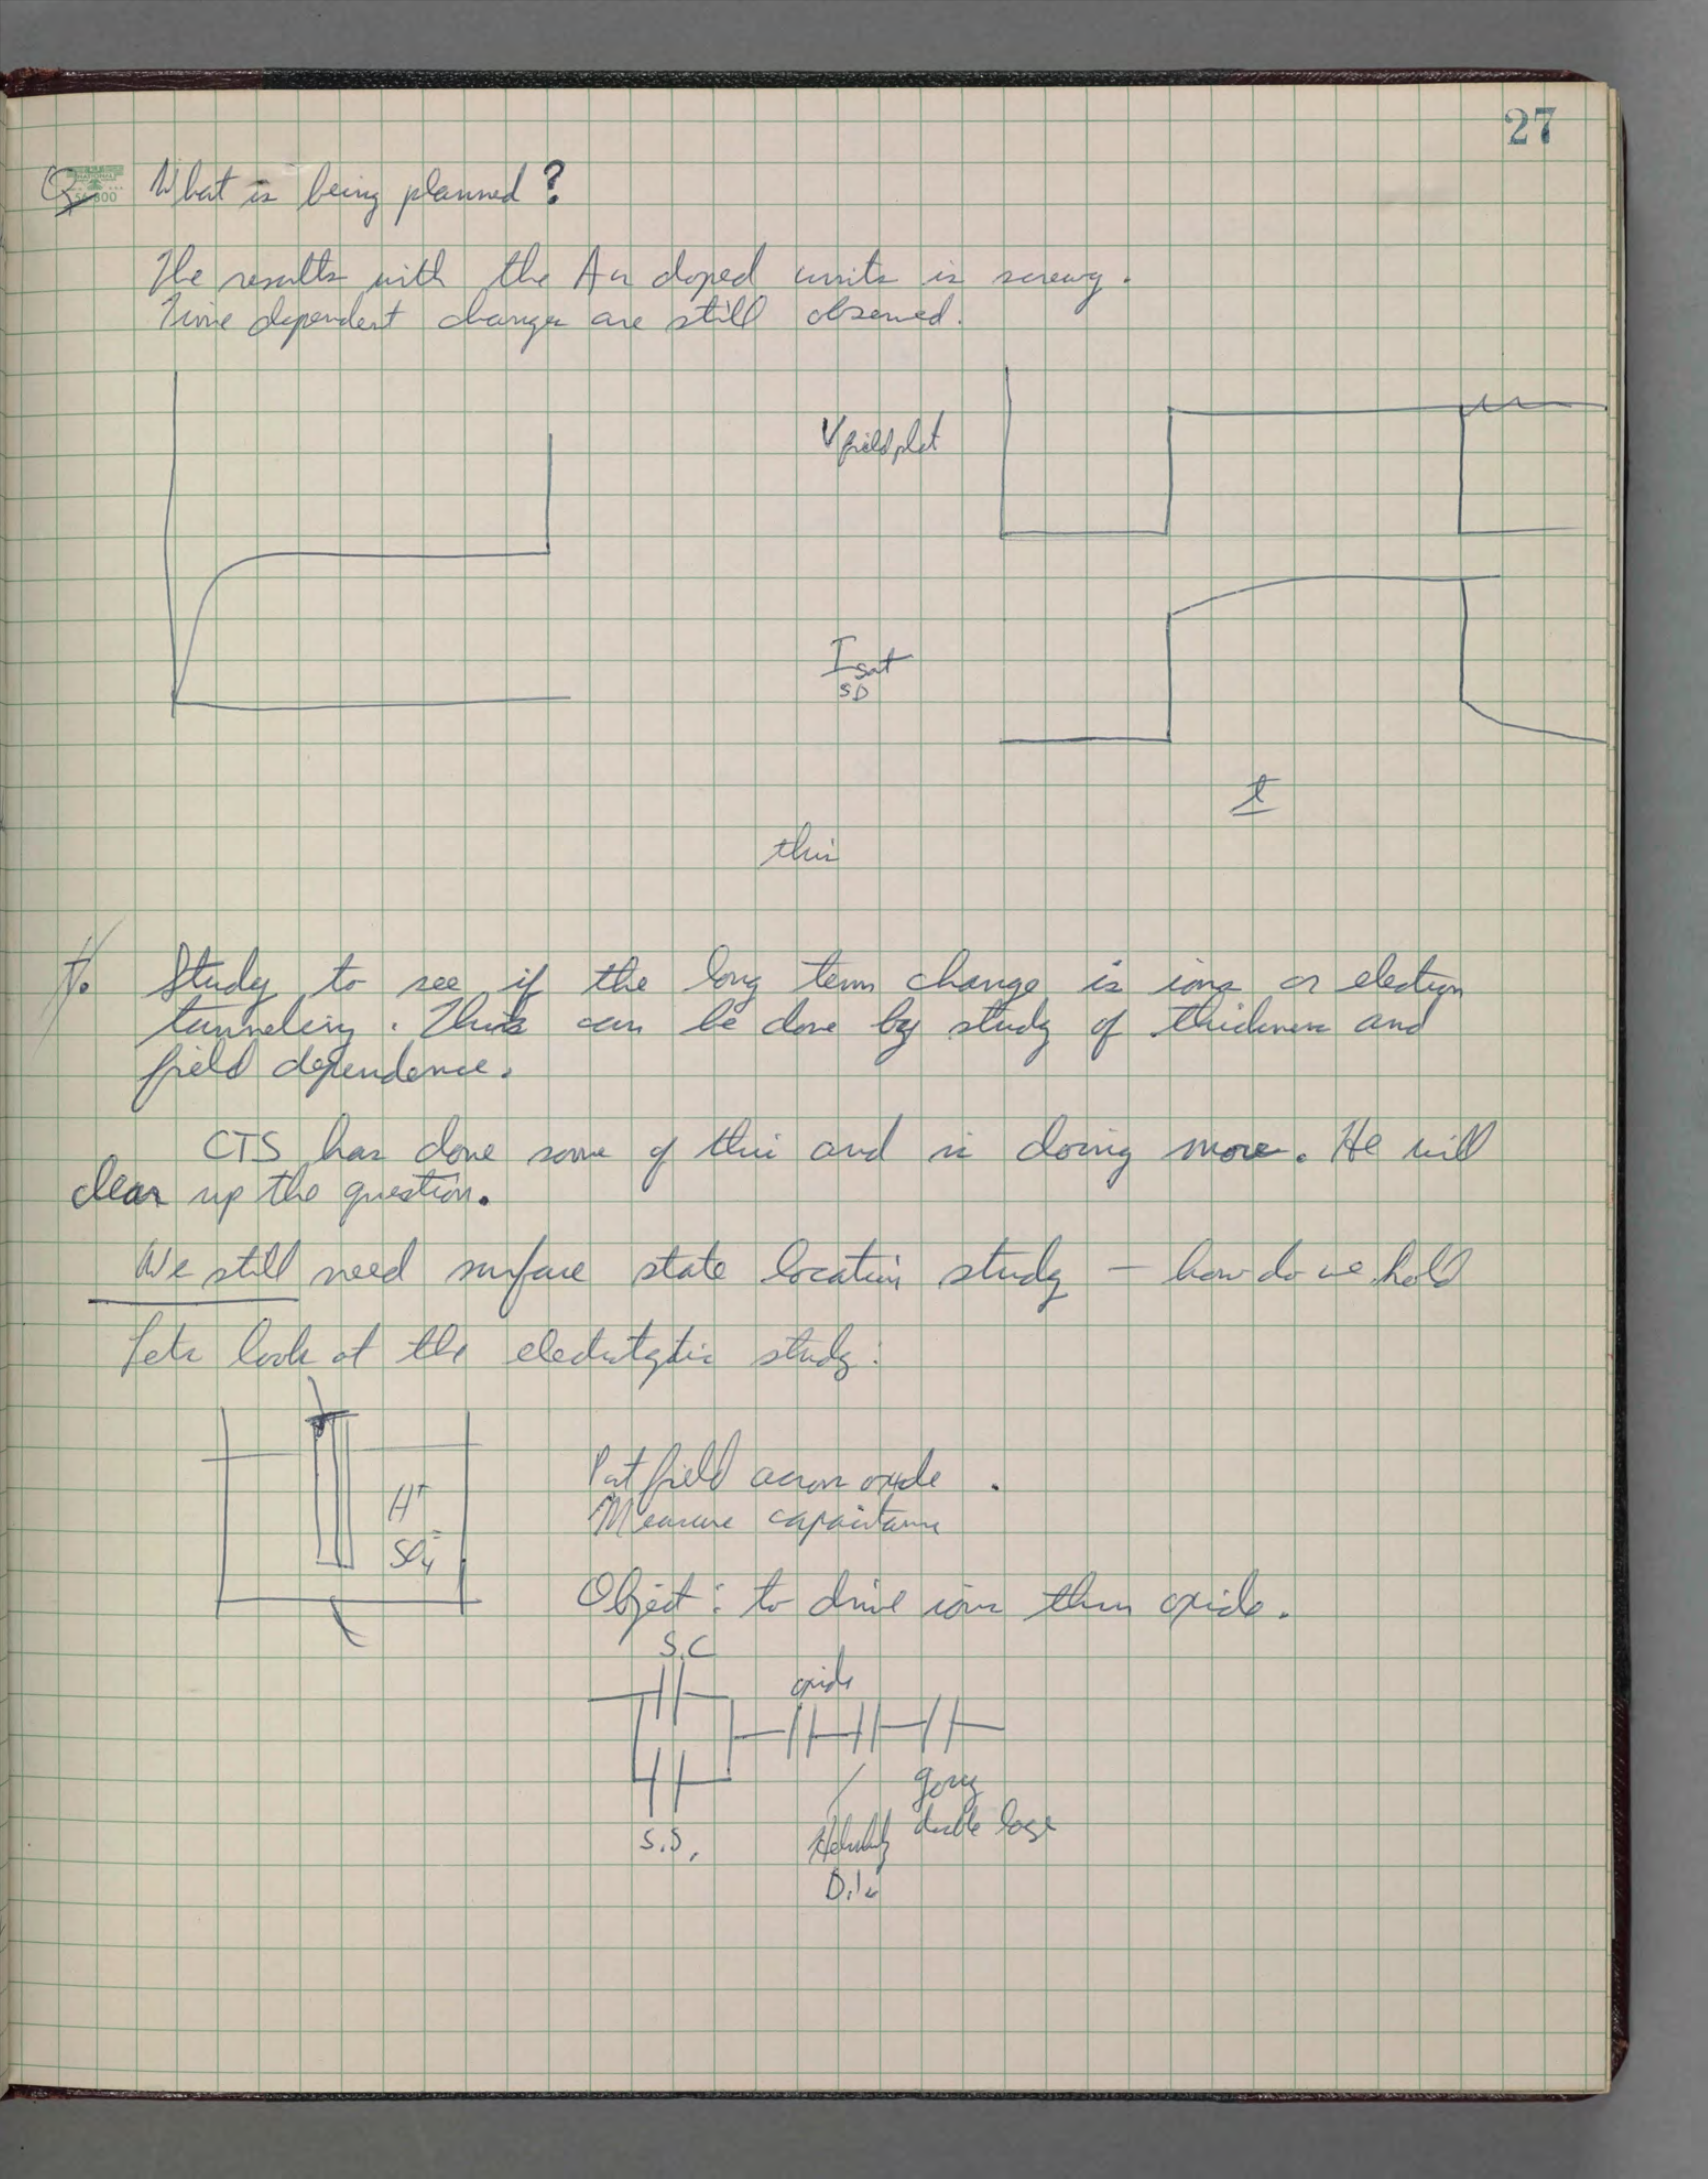 27
Q What is being planned?
The results with the Au doped units is screwy.
Time dependent changes are still observed.
V field plat
I sat
SD
t
this
Study to see if the long term change is ions or electron
tunneling. This can be done by study of thickness and
field dependence.
CTS has done some of this and is doing more. He will
clear up the question.
We still need surface state location study – how do we hold
Lets look at the electrolytic study:
H+
SO4=
Put field across oxide.
Measure capacitance
Object: to drive ions thru oxide.
S.C
oxide
gouy
S.S.
Helmholtz double layer